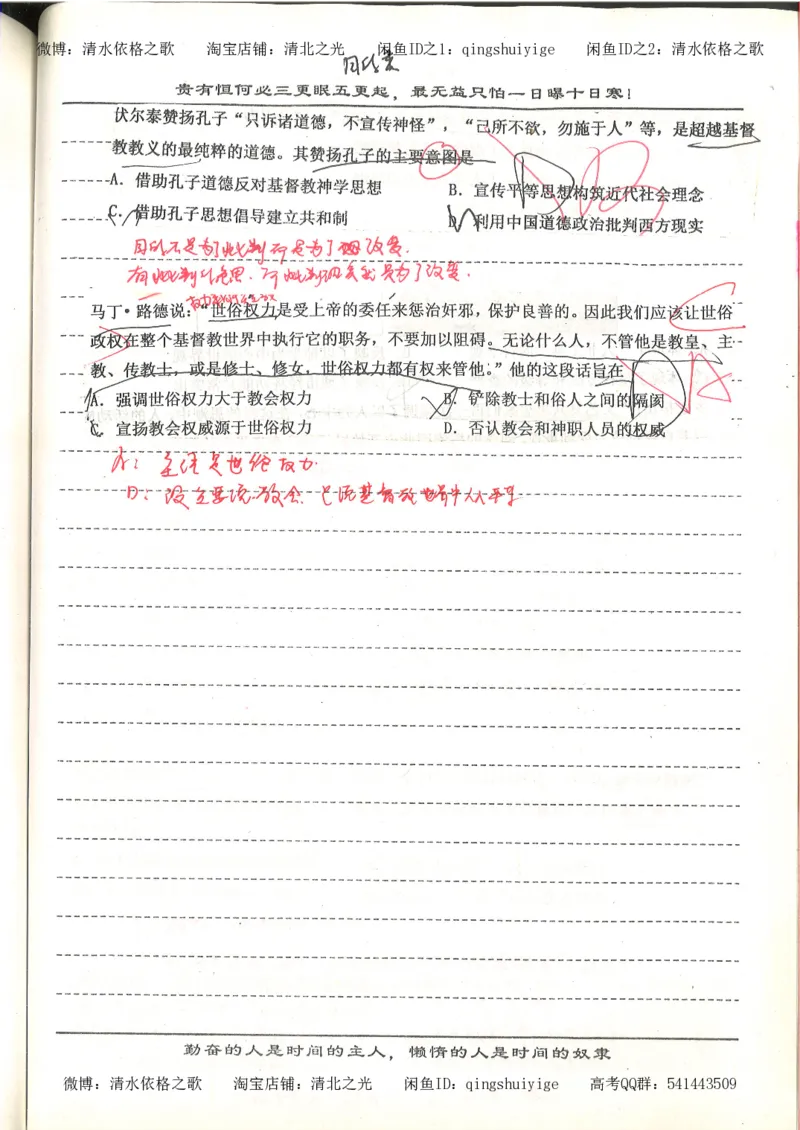 微博：清水依格之歌 淘宝店铺：清北之光 闲鱼ID之1：qingshuiyige 闲鱼ID之2：清水依格之歌
贵有恒何必三更眠五更起，最无益只怕一日曝十日寒！
伏尔泰赞扬孔子“只诉诸道德，不宣传神怪”，“己所不欲，勿施于人”等，是超越基督
教教义的最纯粹的道德。其赞扬孔子的主要意图是
A．借助孔子道德反对基督教神学思想 B．宣传平等思想构筑近代社会理念
C．借助孔子思想倡导建立共和制 D．利用中国道德政治批判西方现实
目的不是为了批判而是为了改变.
马丁·路德说：“世俗权力是受上帝的委任来惩治奸邪，保护良善的。因此我们应该让世俗
政权在整个基督教世界中执行它的职务，不要加以阻碍。无论什么人，不管他是教皇、主
教、传教士，或是修士、修女，世俗权力都有权来管他。”他的这段话旨在
A．强调世俗权力大于教会权力 B．铲除教士和俗人之间的隔阂
C．宣扬教会权威源于世俗权力 D．否认教会和神职人员的权威
A：主语是世俗权力.
勤奋的人是时间的主人，懒惰的人是时间的奴隶
微博：清水依格之歌 淘宝店铺：清北之光 闲鱼ID：qingshuiyige 高考QQ群：541443509